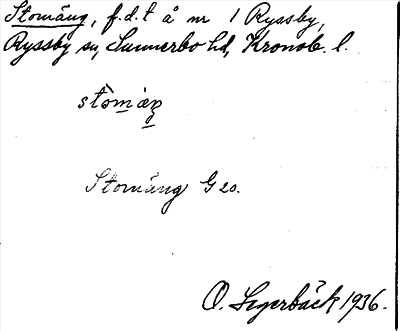 Stomäng, f.d.t å nr 1 Ryssby,
Ryssby sn, Sunnerbo hd, Kronob. l.
Stomäng G 20.
O. Segerbäck 1936.